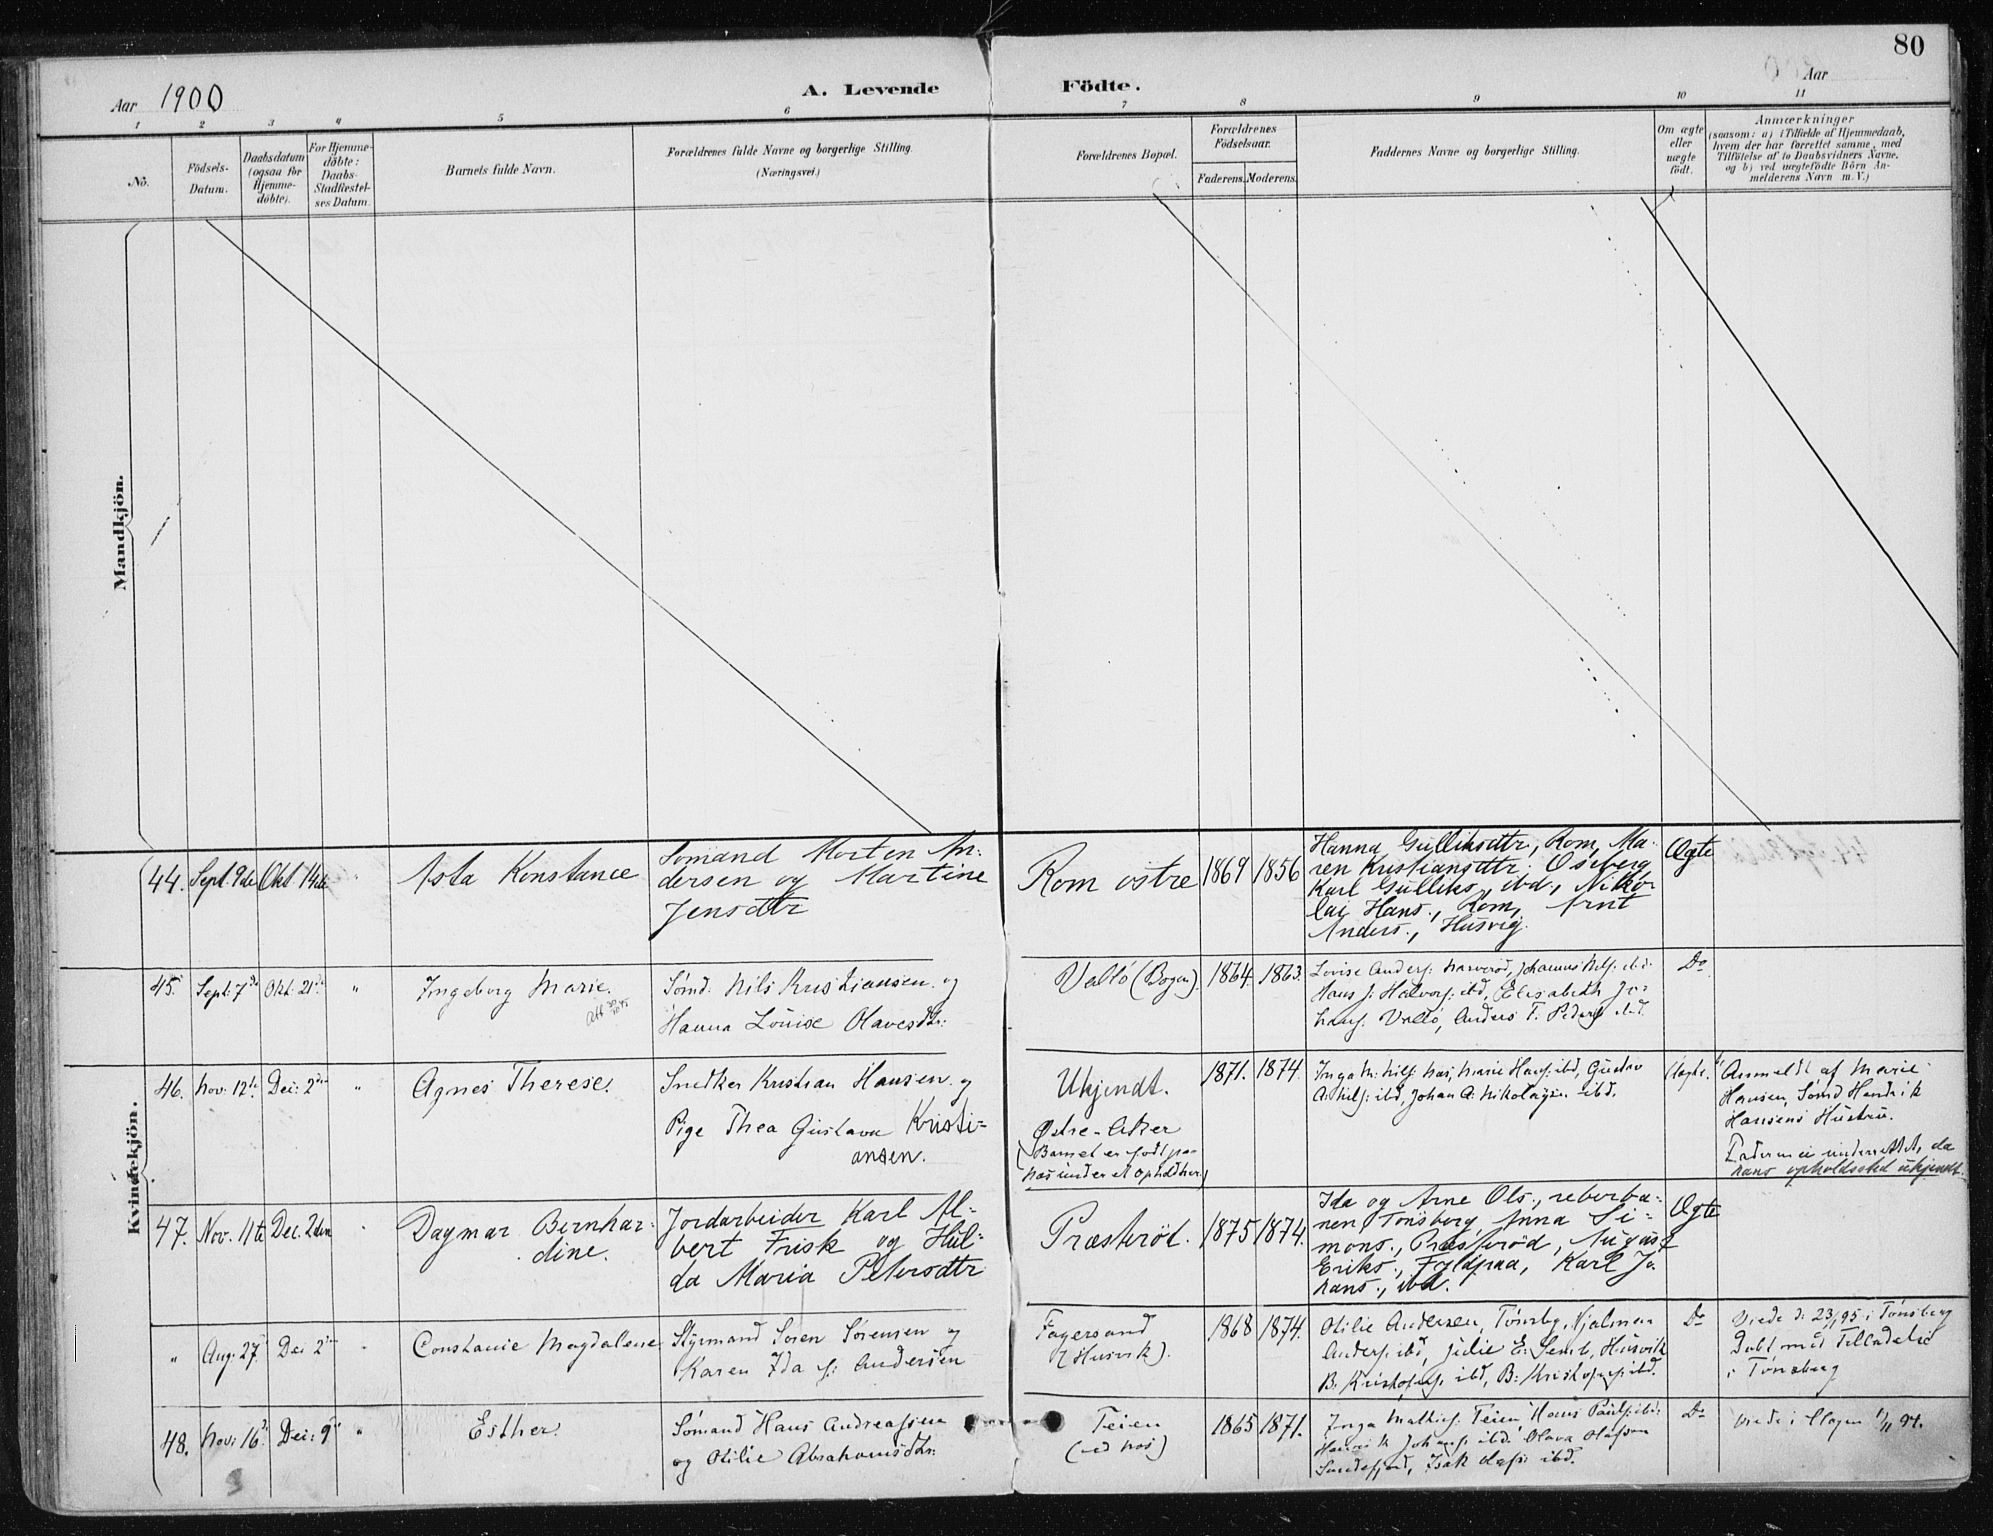 80
Aar 1900
A. Levende Födte.
Aar
1 2 3 4 5 6 7 8 9 10 11
No.
Födsels-
Datum.
Daabsdatum
(ogsaa for
Hjemme-
döbte).
For Hjemme-
döbte:
Daabs-
Stadfæstel-
ses Datum.
Barnets fulde Navn.
Forældrenes fulde Navne og borgerlige Stilling.
(Næringsvei.)
Forældrenes Bopæl.
Forældrenes
Födselsaar.
Faderens. Moderens.
Faddernes Navne og borgerlige Stilling.
Om ægte
eller
uægte
födt.
Anmærkninger
(saasom: a) i Tilfælde af Hjemmedaab,
hvem der har forrettet samme, med
Tilföielse af to Daabsvidners Navne,
og b) ved uægtefödte Börn An-
melderens Navn m. V.)
Mandkjön.
Kvindekjön.
44. Sept. 9de Okt 14de " Asta Konstance
Sömand Morten An-
dersen og Martine
Jensdtr
Rom östre 1869 1856
Hanna Gulliksdtr, Rom, Ma-
ren Kristiansdtr Oseberg
Karl Gulliks., ibd., Niko-
lai Hans., Rom, Arnt
Anders., Husvig.
Ægte
45. Sept. 7de Okt. 21de " Ingeborg Marie.
Sömd. Nils Kristiansen og
Hanna Louise Olavesdtr:
Vallö (Bogen). 1864. 1863.
Lovise Anders: Narverød, Johannes Nils: ibd.
Hans J: Halvors: ibd, Elisabeth Jo-
hans: Vallö, Anders T. Peders ibd.
Do
46. Nov. 12te Dec: 2den " Agnes Therese.
Snedker Kristian Hansen og
Pige Thea Gustava Kristi-
ansen.
Ukjendt.
Østre-Aker
(Barnet er født paa
Nøs under et ophold her)
1871. 1874.
Inga M: Nils: Nøs, Marie Hans: ibd, Gustav
A: Nils: ibd, Johan A: Nikolays: ibd.
Uægte.
Anmeldt af Marie
Hansen, Sömd Hendrik
Hansens Hustru.
Faderen ei underrettet, da
hans opholdssted ukjendt.
47. Nov. 11te Dec. 2den " Dagmar Bernhar-
dine.
Jordarbeider Karl Al-
bert Frisk og Hul-
da Maria Petersdtr
Præsterød. 1875 1874.
Ida og Arne Ols., reberba-
nen Tönsberg, Anna Si-
mons., Præsterød, August
Eriks., Fyldpaa, Karl Jo-
hans., ibd.
Ægte
" Aug. 27 Dec 2den " Constance Magdalene
Styrmand Soren Sörensen og
Karen Ida f: Andersen
Fagersand
(Husvik).
1868 1874.
Otilie Andersen, Tönsbg, Hjalmar
Anders: ibd, Julie E: Semb, Husvik
B: Kristofers: ibd, B: Kristofers: ibd.
Do
Viede d: 23/ 95 i Tönsberg
Døbt med Tilladelse
i Tönsberg
48. Nov: 16de Dec: 9de " Esther.
Sömand Hans Andreassen
og Otilie Abrahamsdtr:
Teien
(ved Nøs)
1865 1871.
Inga Mathis: Teien Hans Pauls: ibd:
Henrik Johans: ibd. Olava Olafsen
Sandefjord, Isak Olafs: ibd.
Do
Viede i Slagen 1/11 94.